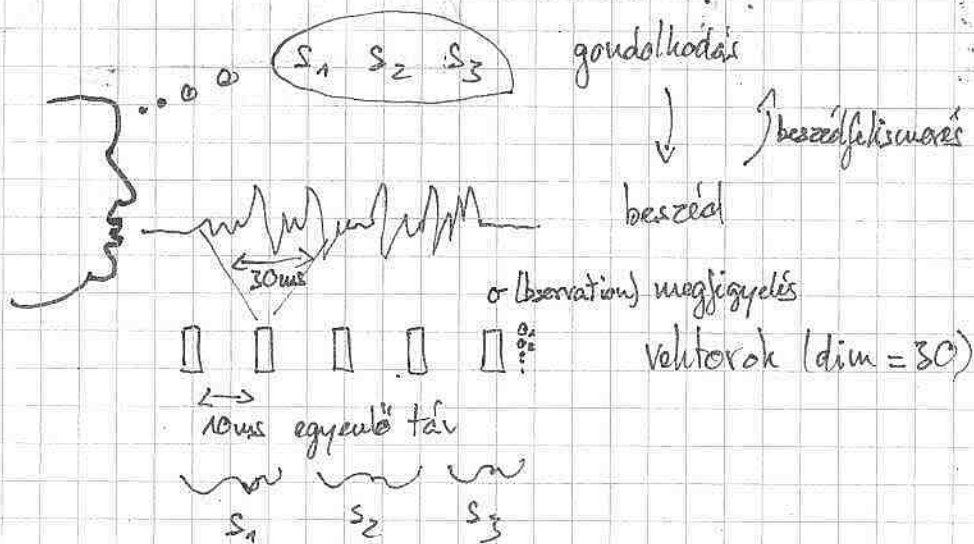 S1 S2 S3
gondolkodás
beszédfelismerés
beszéd
30ms
o (bservation) megfigyelés
o1
o2
vektorok (dim = 30)
10ms egyenlő táv
S1 S2 S3